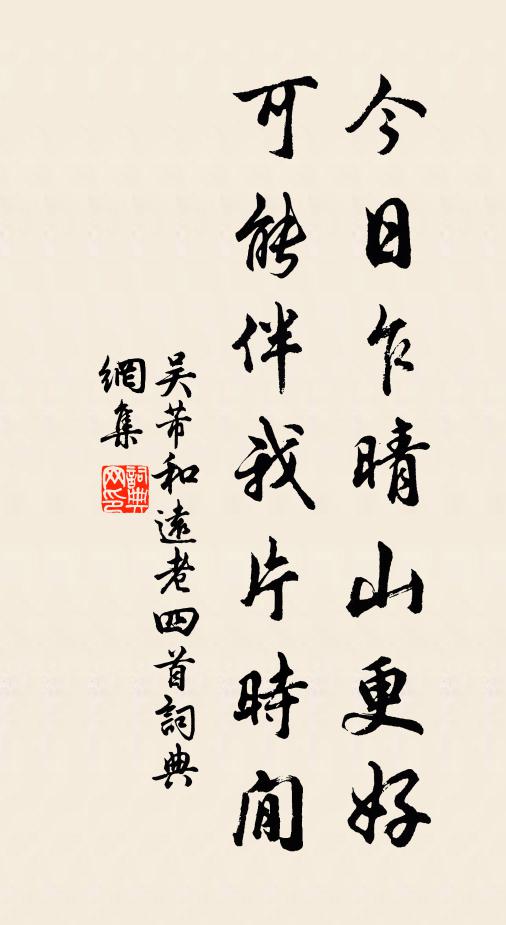 今日乍晴山更好
可能伴我片時閒
吳芾和遠老四首詞典
網集
詞典网印